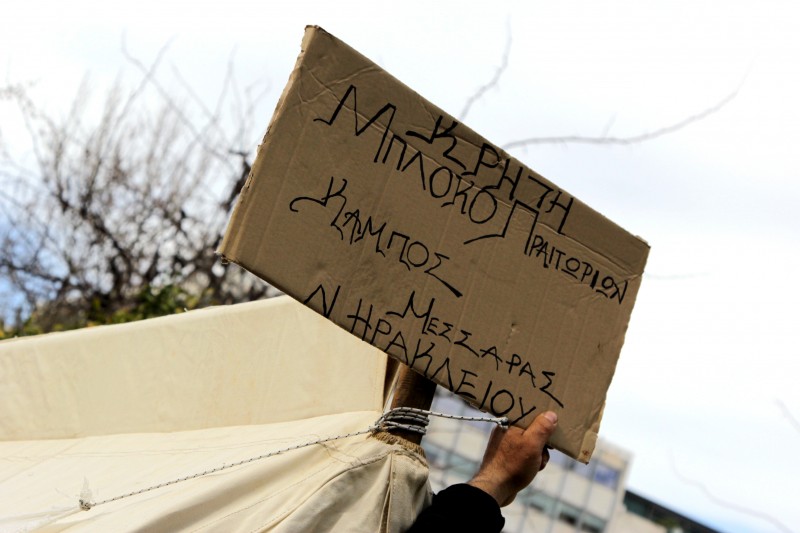 ΚΡΗΤΗ
ΜΠΛΟΚΟ ΠΡΑΙΤΩΡΙΩΝ
ΚΑΜΠΟΣ ΜΕΣΣΑΡΑΣ
Ν ΗΡΑΚΛΕΙΟΥ